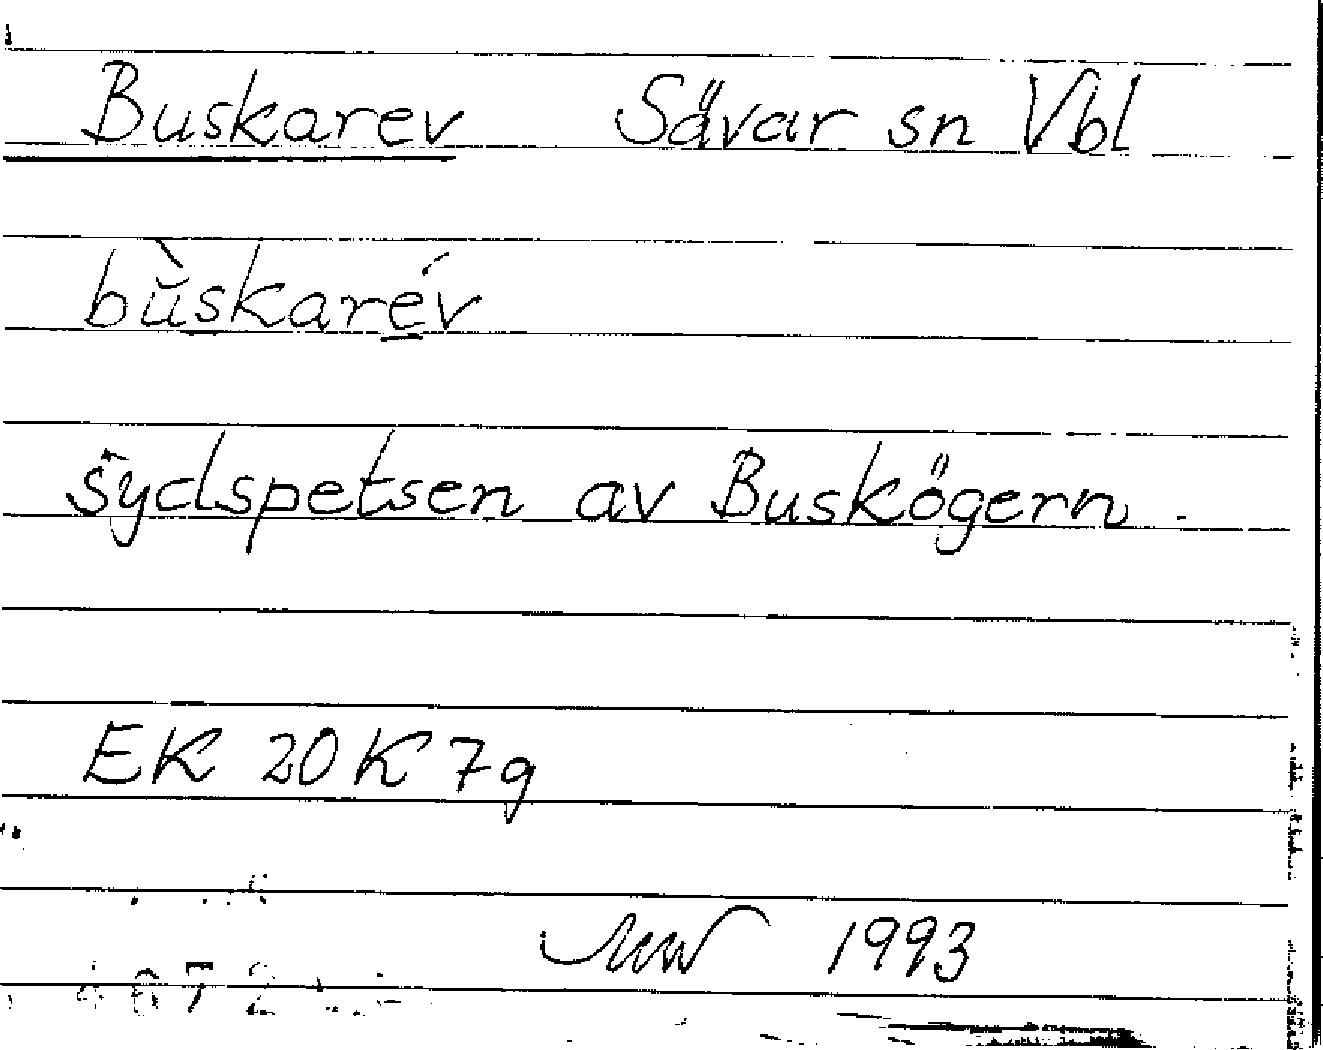 Buskarev Sävar sn Vbl
bùskarév
sydspetsen av Buskögern.
EK 20K7g
1993